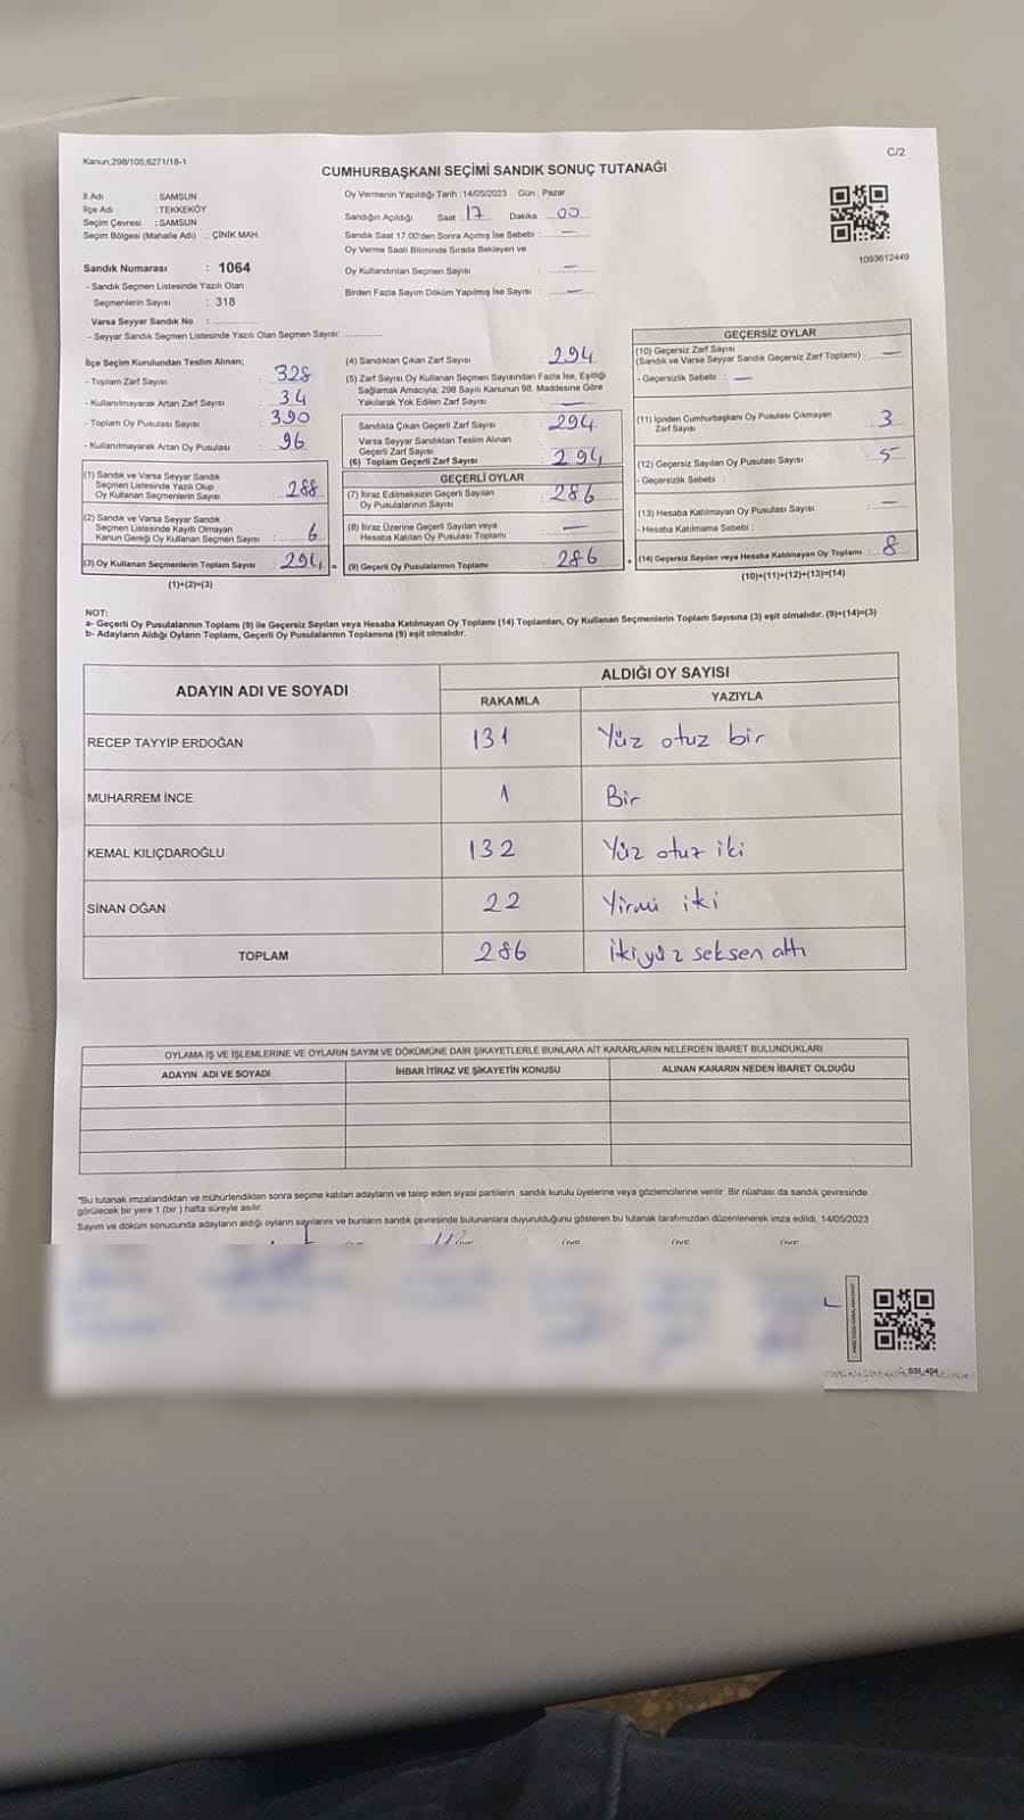 Kanun;298/105;6271/18-1
C/2
CUMHURBAŞKANI SEÇİMİ SANDIK SONUÇ TUTANAĞI
İl Adı : SAMSUN
İlçe Adı : TEKKEKÖY
Seçim Çevresi : SAMSUN
Seçim Bölgesi (Mahalle Adı) : ÇİNİK MAH.
Sandık Numarası : 1064
- Sandık Seçmen Listesinde Yazılı Olan
Seçmenlerin Sayısı : 318
Varsa Seyyar Sandık No :
- Seyyar Sandık Seçmen Listesinde Yazılı Olan Seçmen Sayısı:
Oy Vermenin Yapıldığı Tarih :14/05/2023 Gün : Pazar
Sandığın Açıldığı Saat 17 Dakika 00
Sandık Saat 17.00'den Sonra Açılmış İse Sebebi : —
Oy Verme Saati Bitiminde Sırada Bekleyen ve
Oy Kullandırılan Seçmen Sayısı : —
Birden Fazla Sayım Döküm Yapılmış İse Sayısı : —
1093612449
İlçe Seçim Kurulundan Teslim Alınan;
- Toplam Zarf Sayısı : 328
- Kullanılmayarak Artan Zarf Sayısı : 34
- Toplam Oy Pusulası Sayısı : 390
- Kullanılmayarak Artan Oy Pusulası : 96
(1) Sandık ve Varsa Seyyar Sandık
Seçmen Listesinde Yazılı Olup
Oy Kullanan Seçmenlerin Sayısı : 288
(2) Sandık ve Varsa Seyyar Sandık
Seçmen Listesinde Kayıtlı Olmayan
Kanun Gereği Oy Kullanan Seçmen Sayısı : 6
(3) Oy Kullanan Seçmenlerin Toplam Sayısı : 294
(1)+(2)=(3)
(4) Sandıktan Çıkan Zarf Sayısı : 294
(5) Zarf Sayısı Oy Kullanan Seçmen Sayısından Fazla İse, Eşitliği
Sağlamak Amacıyla; 298 Sayılı Kanunun 98. Maddesine Göre
Yakılarak Yok Edilen Zarf Sayısı : —
Sandıkta Çıkan Geçerli Zarf Sayısı : 294
Varsa Seyyar Sandıktan Teslim Alınan
Geçerli Zarf Sayısı
(6) Toplam Geçerli Zarf Sayısı : 294
GEÇERLİ OYLAR
(7) İtiraz Edilmeksizin Geçerli Sayılan
Oy Pusulalarının Sayısı : 286
(8) İtiraz Üzerine Geçerli Sayılan veya
Hesaba Katılan Oy Pusulası Toplamı : —
(9) Geçerli Oy Pusulalarının Toplamı : 286
GEÇERSİZ OYLAR
(10) Geçersiz Zarf Sayısı
(Sandık ve Varsa Seyyar Sandık Geçersiz Zarf Toplamı) : —
- Geçersizlik Sebebi : —
(11) İçinden Cumhurbaşkanı Oy Pusulası Çıkmayan
Zarf Sayısı : 3
(12) Geçersiz Sayılan Oy Pusulası Sayısı : 5
- Geçersizlik Sebebi :
(13) Hesaba Katılmayan Oy Pusulası Sayısı : —
- Hesaba Katılmama Sebebi :
(14) Geçersiz Sayılan veya Hesaba Katılmayan Oy Toplamı : 8
(10)+(11)+(12)+(13)=(14)
NOT:
a- Geçerli Oy Pusulalarının Toplamı (9) ile Geçersiz Sayılan veya Hesaba Katılmayan Oy Toplamı (14) Toplamları, Oy Kullanan Seçmenlerin Toplam Sayısına (3) eşit olmalıdır. (9)+(14)=(3)
b- Adayların Aldığı Oyların Toplamı, Geçerli Oy Pusulalarının Toplamına (9) eşit olmalıdır.
ADAYIN ADI VE SOYADI
ALDIĞI OY SAYISI
RAKAMLA YAZIYLA
RECEP TAYYİP ERDOĞAN 131 Yüz otuz bir
MUHARREM İNCE 1 Bir
KEMAL KILIÇDAROĞLU 132 Yüz otuz iki
SİNAN OĞAN 22 Yirmi iki
TOPLAM 286 İkiyüz seksen altı
OYLAMA İŞ VE İŞLEMLERİNE VE OYLARIN SAYIM VE DÖKÜMÜNE DAİR ŞİKAYETLERLE BUNLARA AİT KARARLARIN NELERDEN İBARET BULUNDUKLARI
ADAYIN ADI VE SOYADI İHBAR İTİRAZ VE ŞİKAYETİN KONUSU ALINAN KARARIN NEDEN İBARET OLDUĞU
*Bu tutanak imzalandıktan ve mühürlendikten sonra seçime katılan adayların ve talep eden siyasi partilerin sandık kurulu üyelerine veya gözlemcilerine verilir. Bir nüshası da sandık çevresinde
görülecek bir yere 1 (bir ) hafta süreyle asılır.
Sayım ve döküm sonucunda adayların aldığı oyların sayılarını ve bunların sandık çevresinde bulunanlara duyurulduğunu gösteren bu tutanak tarafımızdan düzenlenerek imza edildi. 14/05/2023